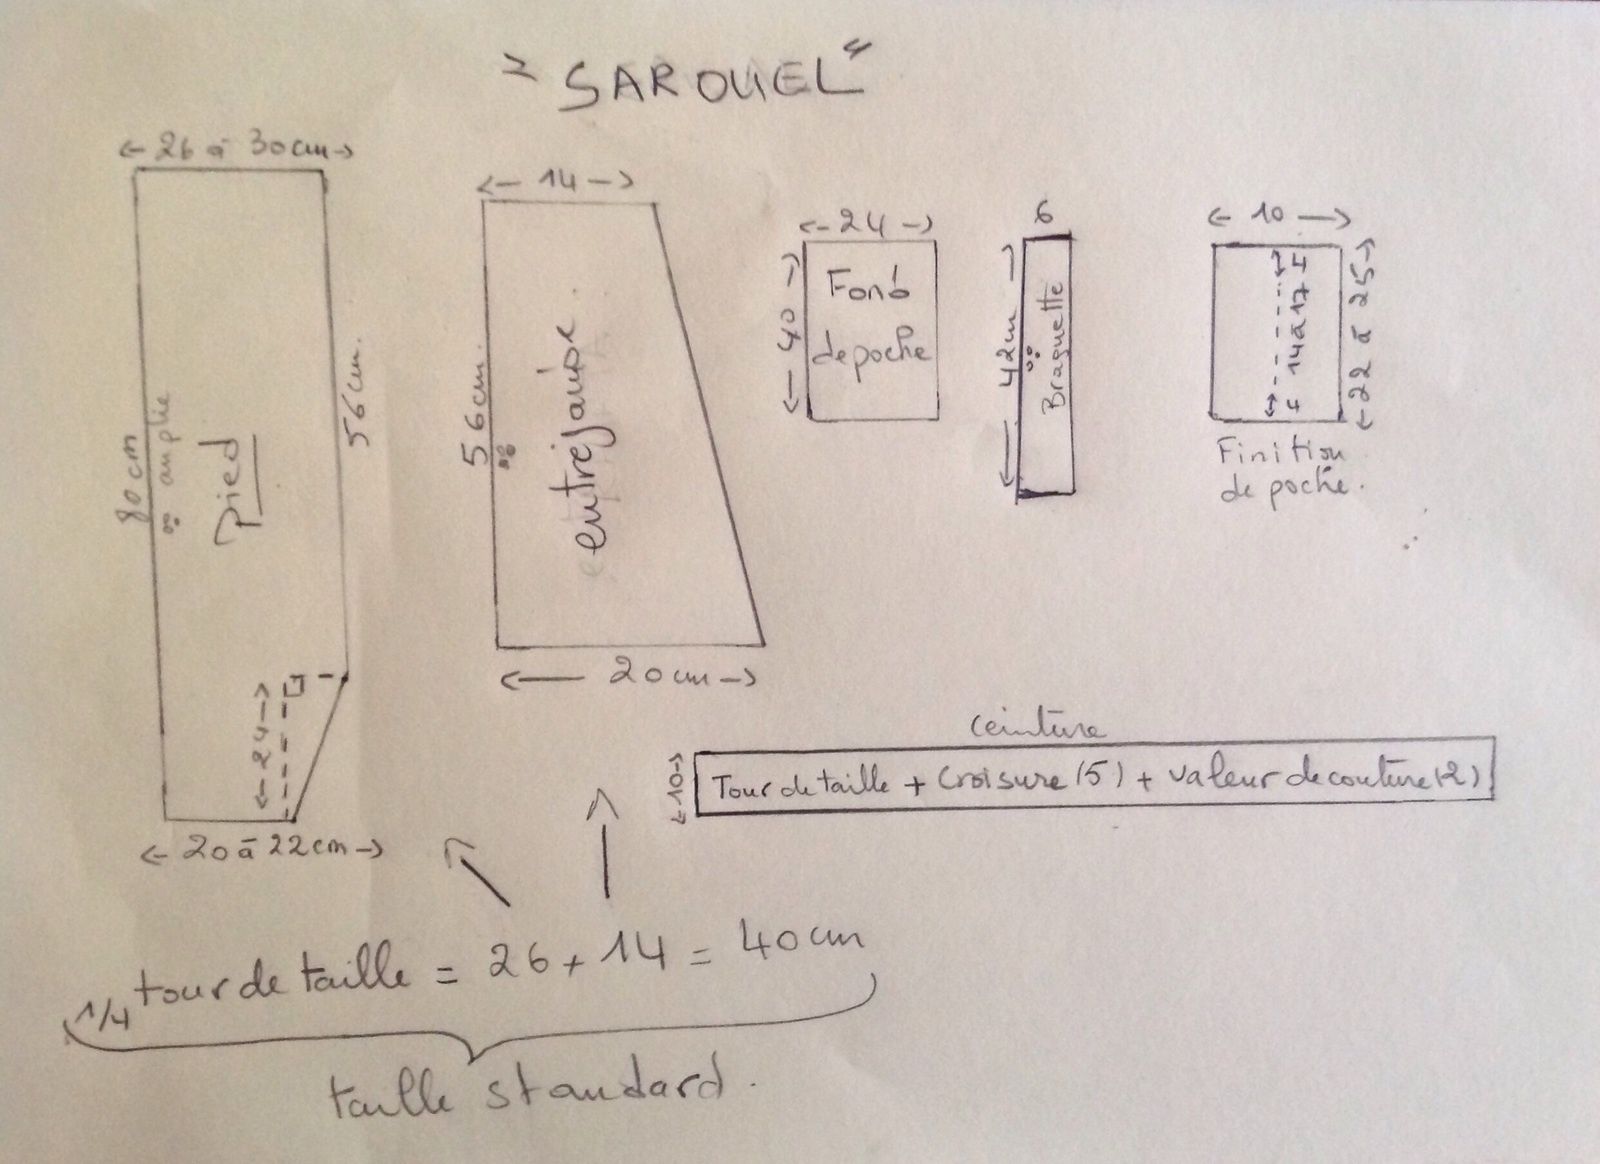 "SAROUEL"
26 à 30cm
80cm
au plie
Pied
56cm.
24
20 à 22cm
14
56cm.
entrejambe.
20cm
24
40
Fond
de poche
6
42cm
Braguette
10
4 14à17 4
22 à 25
Finition
de poche.
ceinture
10
Tour de taille + Croisure (5) + Valeur de couture (2)
1/4 tour de taille = 26 + 14 = 40cm
taille standard.